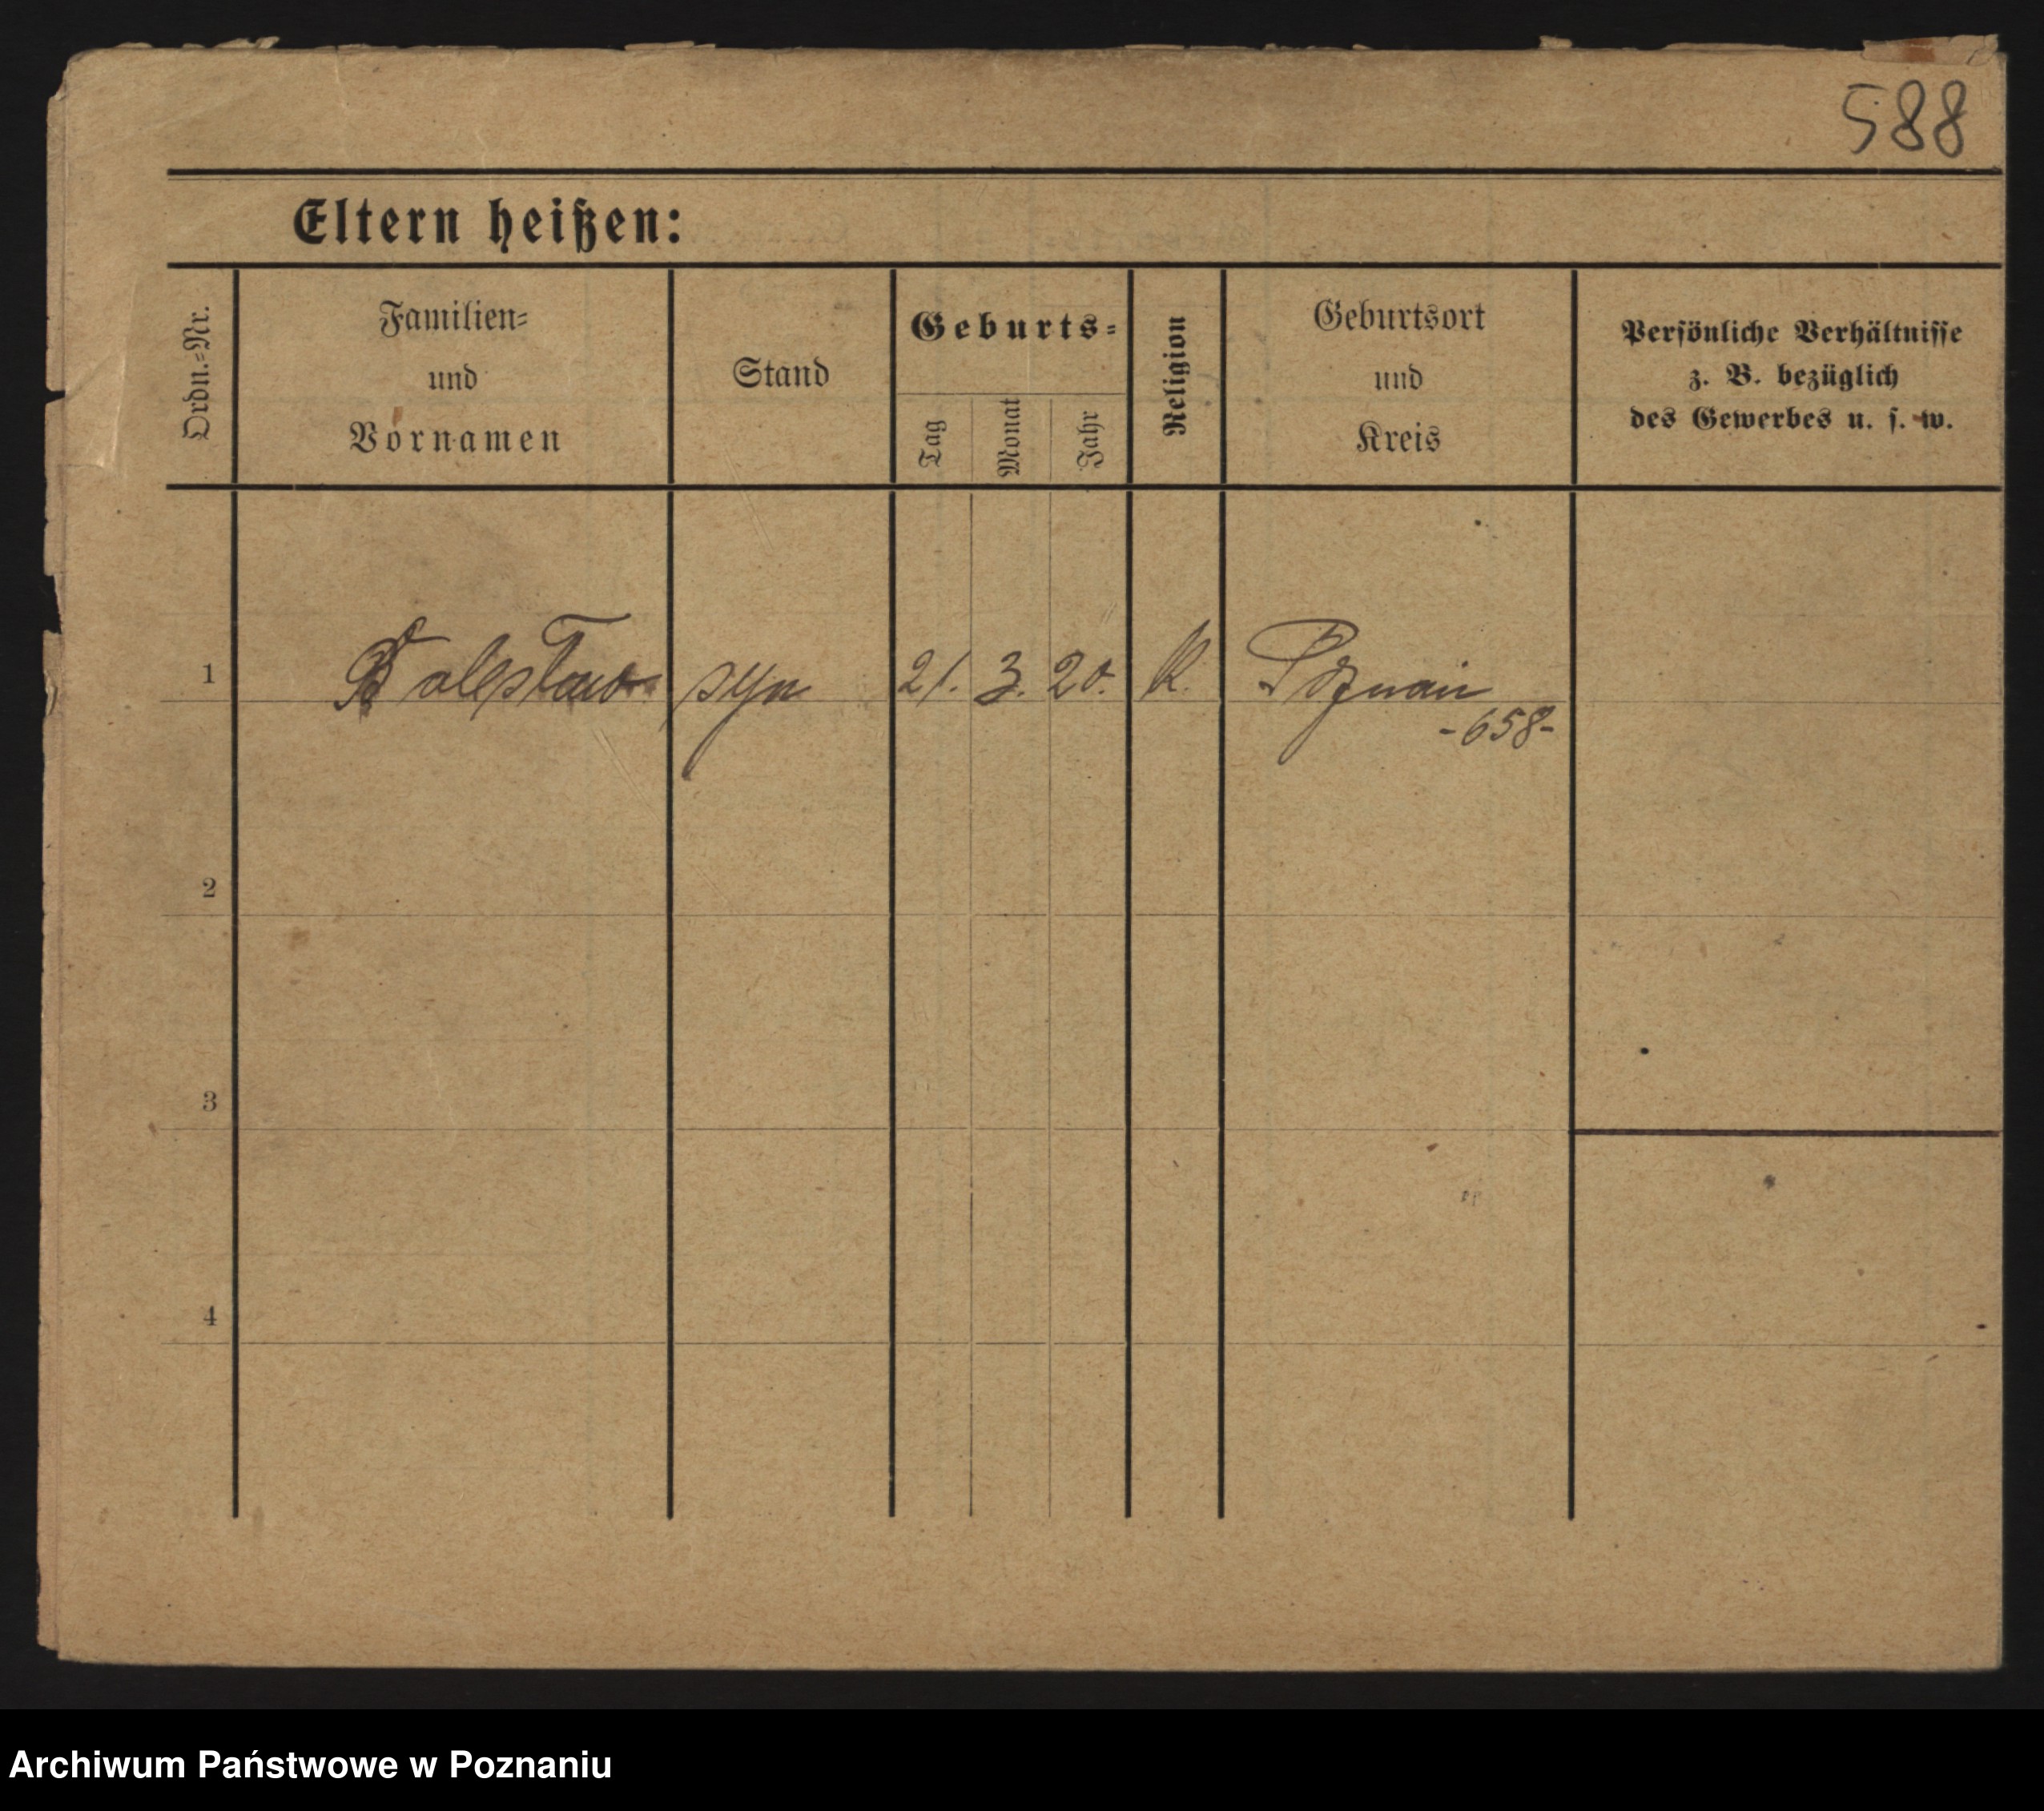 588
Eltern heißen:
Ordn.=Nr.
Familien=
und
Vornamen
Stand
Geburts=
Tag
Monat
Jahr
Religion
Geburtsort
und
Kreis
Persönliche Verhältnisse
z. B. bezüglich
des Gewerbes u. s. w.
1 syn 21. 3. 20. K. Poznań
-658-
2
3
4
Archiwum Państwowe w Poznaniu